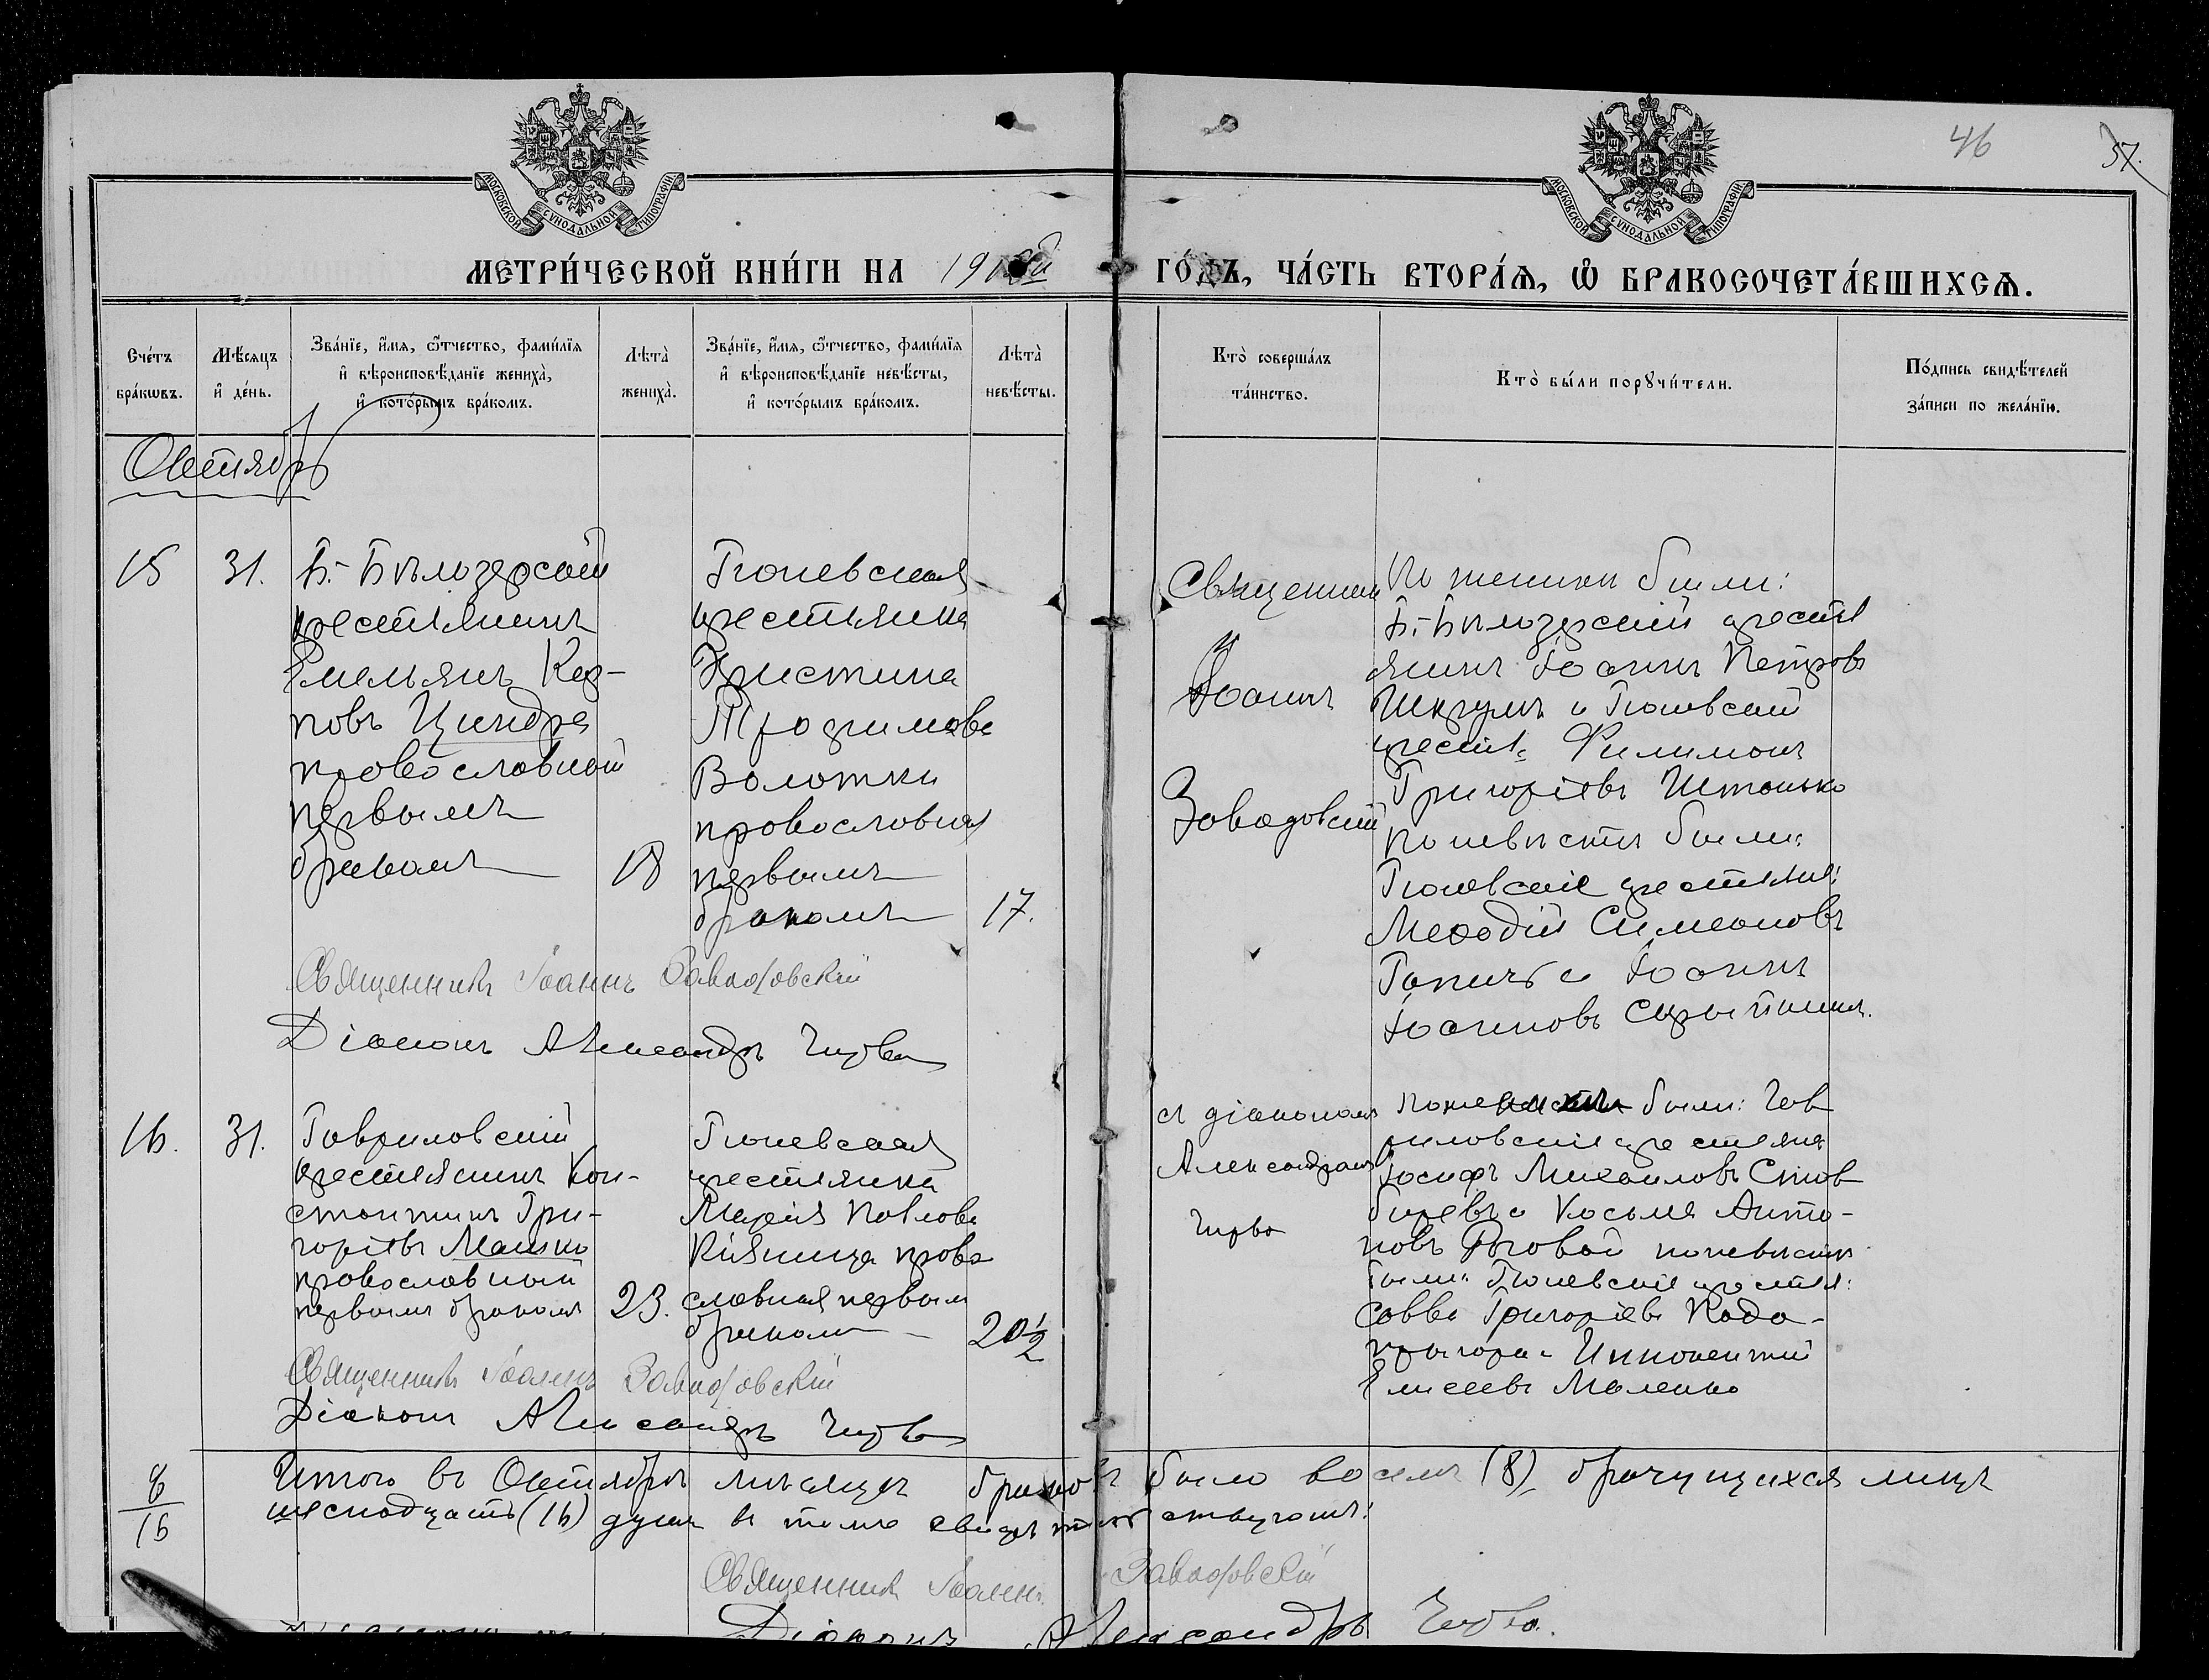 46
57.
МОСКОВСКОЙ СѴНОДАЛЬНОЙ ТИПОГРАФІИ
МОСКОВСКОЙ СѴНОДАЛЬНОЙ ТИПОГРАФІИ
МЕТРИ́ЧЕСКОЙ КНИ́ГИ НА 191 й ГО́ДЪ, ЧА́СТЬ ВТОРА́Ѧ, Ѡ҆ БРАКОСОЧЕТА́ВШИХСѦ.
Сче́тъ
бра́кѡвъ.
Мѣ́сяцъ
и҆ де́нь.
Зва́нїе, и҆́мя, ѻ҆́тчество, фами́лїя
и҆ вѣроисповѣ́данїе жениха̀,
и҆ кото́рымъ бра́комъ.
Лѣта̀
жениха̀.
Зва́нїе, и҆́мя, ѻ҆́тчество, фами́лїя
и҆ вѣроисповѣ́данїе невѣ́сты,
и҆ кото́рымъ бра́комъ.
Лѣта̀
невѣ́сты.
Кто̀ соверша́лъ
та́инство.
Кто̀ бы́ли порꙋчи́тели.
По́дпись свидѣ́телей
за́писи по жела́нїю.
Октябрь
15
31.
Б.-Бѣлозерскій
крестьянинъ
Емельянъ Кар-
повъ Циндра
православный
первымъ
бракомъ
18
Гюневская
крестьянка
Христина
Трофимова
Волотки
православная
первымъ
бракомъ
17.
Священникъ
Іоаннъ
Завадовскій
По женихѣ были:
Б.-Бѣлозерскій крестья
янинъ Іоаннъ Петровъ
Шкрумъ и Гюневскій
крестья: Филимонъ
Григоріевъ Штанько
По невѣстѣ были:
Гюневскіе крестьяне:
Меѳодій Симеоновъ
Гапичъ и Іоаннъ
Іоанновъ
Священникъ Іоаннъ Завадовскій
Діаконъ Александръ Чирва
16.
31.
Гавриловскій
крестьянинъ Кон-
стантинъ Гри-
горіевъ Машко
православный
первымъ бракомъ
23.
Гюневская
крестьянка
Марія Павлова
Кіяница право
славная первымъ
бракомъ
20½
съ діакономъ
Александромъ
Чирва
были: Гав
риловскіе крестьяне
Іосифъ Михаиловъ
и Косьма Анто-
новъ Роговой по невѣстѣ
были: Гюневскіе крестья:
Савва Григоріевъ Кодо-
пригора и Иннокентій
Елисеевъ Маленко
Священникъ Іоаннъ Завадовскій
Діаконъ Александръ Чирва
8
16
Итого въ Октябрѣ мѣсяцѣ браковъ было восемь (8), брачущихся лицъ
шеснадцать (16) душъ въ томъ свидѣтельствуютъ:
Священникъ Іоаннъ Завадовскій
Діаконъ Александръ Чирва.